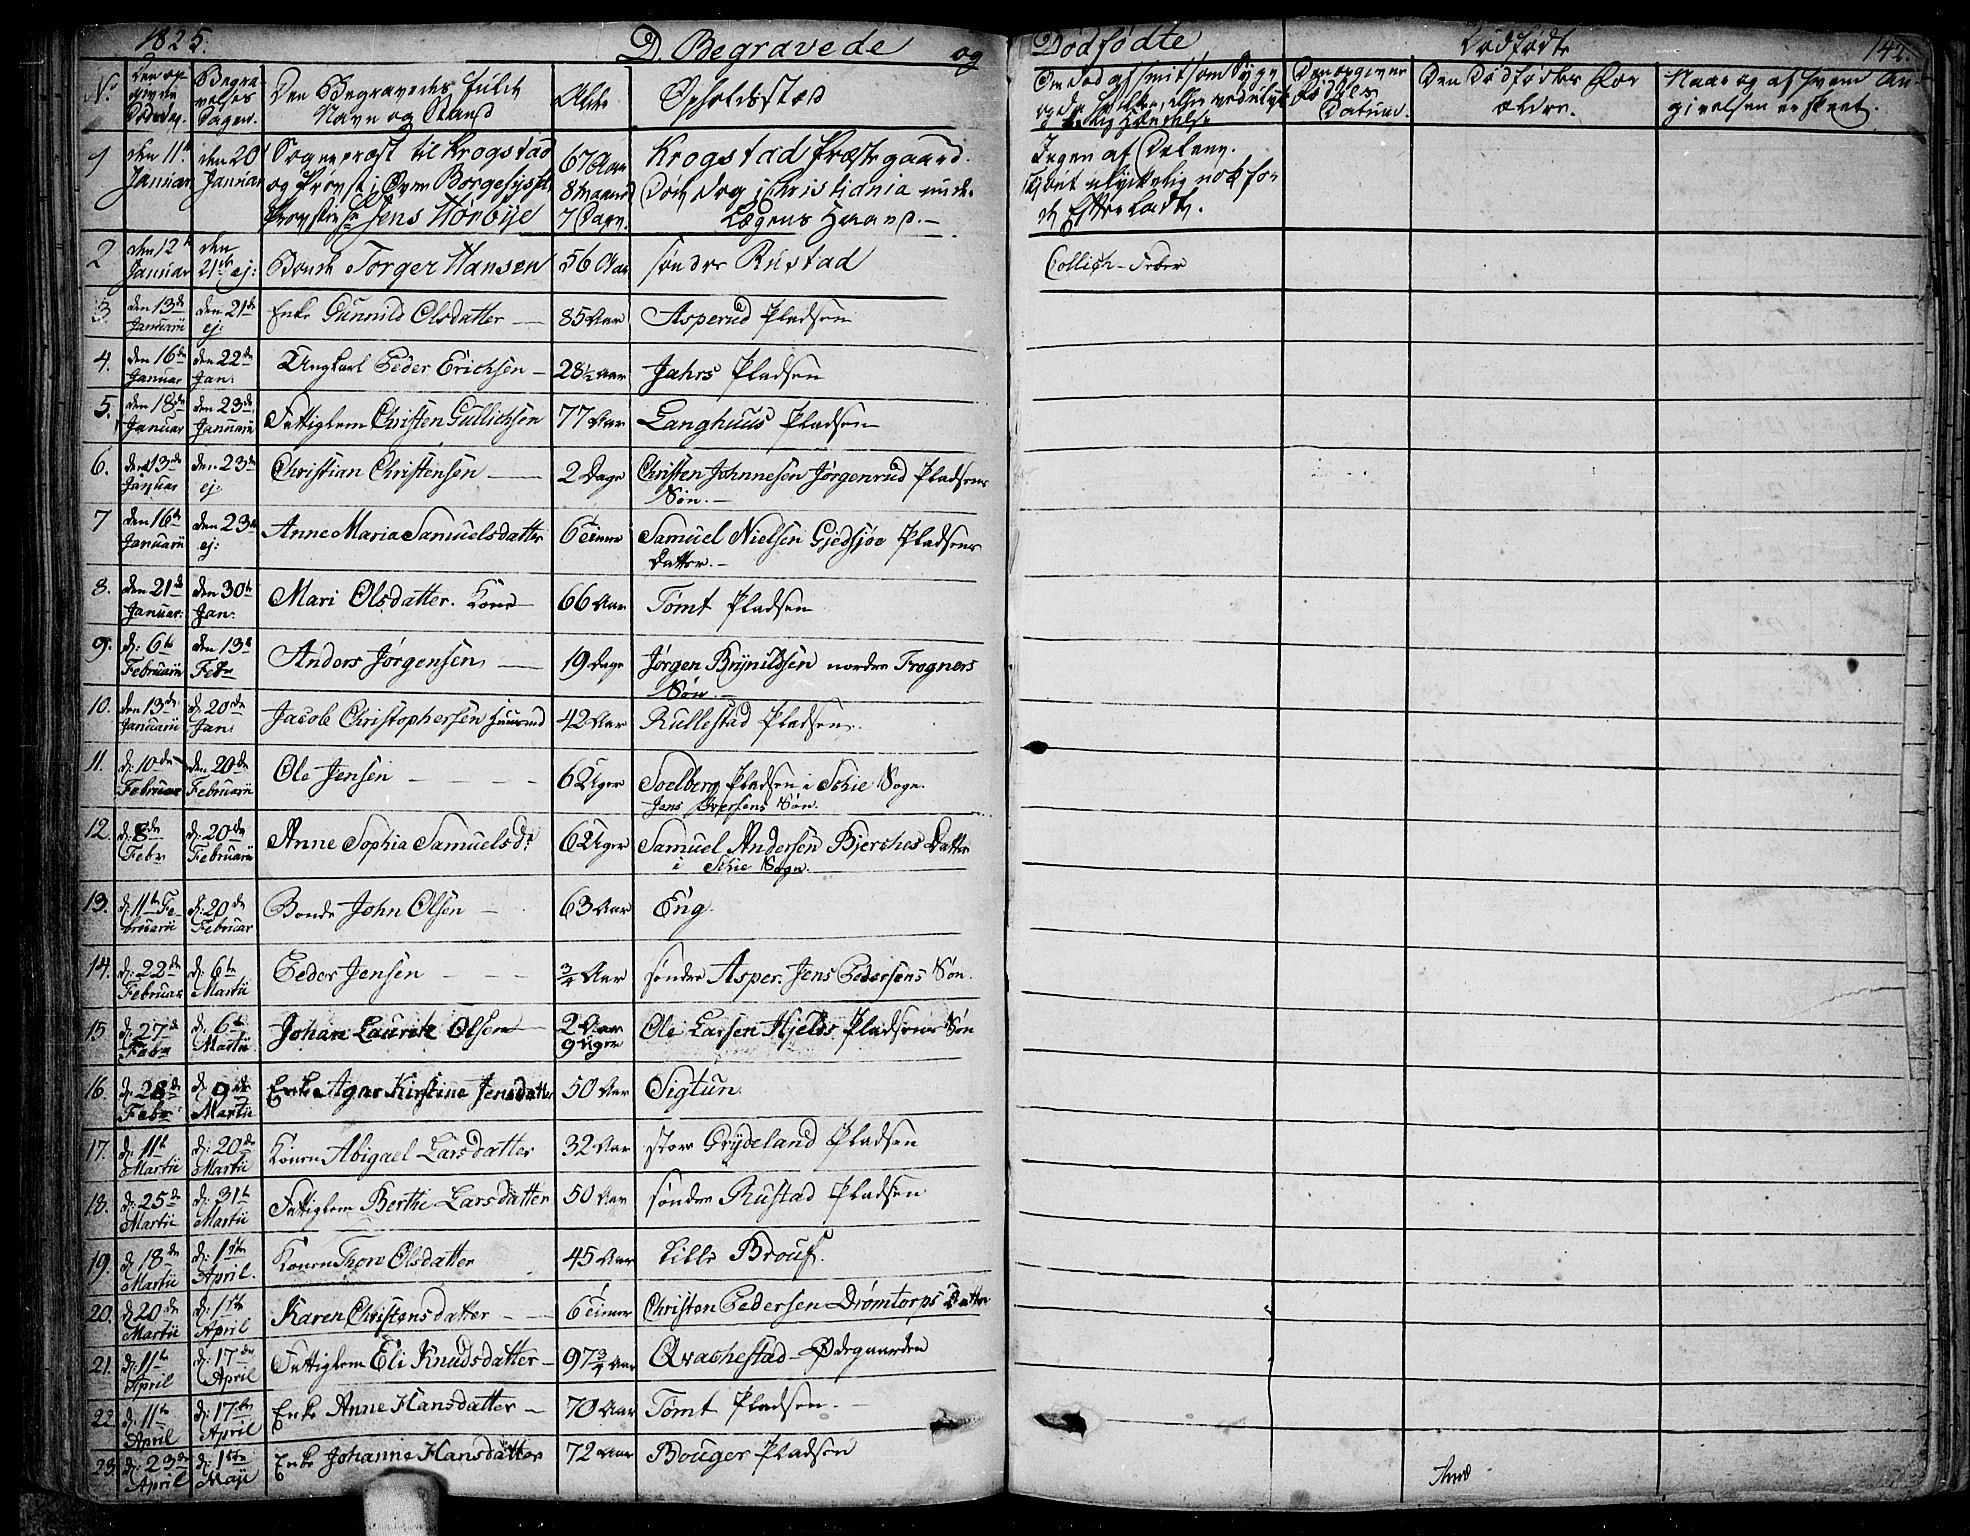 1825. D. Begravede og Dødfødte Dødfødte 142.
No Den opgivne Dødsdag. Begravelses Dagen. Den Begravedes fulde Navn og Stand Alder Opholdssted
Den opgivne Fødsels Datum. Den Dødfødtes Forældre. Naar og af hvem Angivelsen er skeet.
1 den 11te Januar den 20 Januar Sognepræst til Krogstad og Provst i Øvre Borgesyssels Provstie Hr Jens Hørbye 67 Aar 8 Maaned 7 Dage. Krogstad Præstegaard. Døde dog i Christiania under Lægens Haand. Ingen af Delene.
2 den 12te Januar den 21de ej: Bonde Torger Hansen 56 Aar søndre Rustad Collich-Feber
3. den 13de Januarii den 21de ej: Enke Gunnild Olsdatter 85 Aar Asperud Pladsen
4. den 16de Januar den 22de Jan: Ungkarl Peder Erichsen 28½ Aar Jahrs Pladsen
5. den 18de Januar den 23de Januarii Fattiglem Christen Gullichsen 77 Aar Langhuus Pladsen
6. den 13de Januar den 23de ej: Christian Christensen 2 Dage Christen Johnnesen Jørgenrud Pladsens Søn.
7 den 16de Januarii den 23de ej: Anne Maria Samuelsdatter 6 Timer Samuel Nielsen Gjedsjøe Pladsens Datter.
8. den 21de Januar: den 30te Jan: Mari Olsdatter. Kone 66 Aar Tømt Pladsen
9. d: 6te Februarii den 13de Febr Anders Jørgensen 19 Dage Jørgen Brynildsen nordre Frogners Søn.
10. den 13de Januarii d: 20de Jan: Jacob Christophersen Huusmd 42 Aar Rullestad Pladsen.
11. d: 10de Februar den 20de Februarii Ole Jensen 6 Uger Soelberg Pladsen i Schie Sogn. Jens Iversens Søn.
12. d: 8de Febr d: 20de Februarii Anne Sophia Samuelsdr 6 Uger Samuel Andersen Bjerches Datter i Schie Sogn.
13. d: 11te Februarii d: 20de Februar Bonde John Olsen 63 Aar Eng.
14. d: 22de Februar d: 6te Martii Peder Jensen ¾ Aar søndre Asper. Jens Pedersens Søn.
15 d: 27de Febr d: 6te Martii Johan Lauritz Olsen 2 Aar 9 Uger Ole Larsen Hjelds Pladsens Søn
16. d: 28de Febr: d: 9de Martii Enke Agne Kirstine Jensdatter 50 Aar Sigtun.
17. d: 11te Martii d: 20de Martii Konen Abigael Larsdatter 32 Aar store Grydeland Pladsen
18. d: 25de Martii d: 31te Martii Fattiglem Berthe Larsdatter 50 Aar søndre Rustad Pladsen
19. d: 18de Martii d: 1ste April. Konen Thore Olsdatter 45 Aar Lille Brouf.
20. d: 20de Martii d: 1ste April Karen Christensdatter 6 Timer Christen Pedersen Drømtorps Datter
21. d: 11te April d: 17de April Fattiglem Eli Knudsdatter 97¾ Aar Qvachestad-Ødegaarden
22. d: 11te April d: 17de April Enke Anne Hansdatter 70 Aar Tømt Pladsen.
23. d: 23de April d: 1ste Maji Enke Johanne Hansdatter 72 Aar Bouger Pladsen